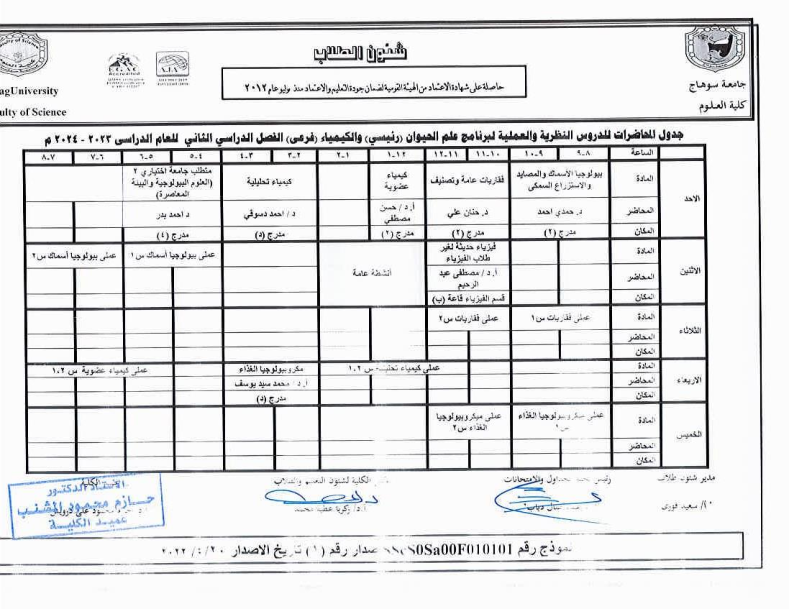 شئون الطلاب
جامعة سوهاج
كلية العلوم
Faculty of Science
agUniversity
ulty of Science
حاصلة على شهادة الاعتماد من الهيئة القومية لضمان جودة التعليم والاعتماد منذ يوليو عام ٢٠١٢
جدول المحاضرات للدروس النظرية والعملية لبرنامج علم الحيوان (رئيسي) والكيمياء (فرعى) الفصل الدراسي الثاني للعام الدراسى ٢٠٢٣ - ٢٠٢٤ م
الساعة ٨-٩ ٩-١٠ ١٠-١١ ١١-١٢ ١٢-١ ١-٢ ٢-٣ ٣-٤ ٤-٥ ٥-٦ ٦-٧ ٧-٨
الاحد
المادة
بيولوجيا الأسماك والمصايد
والاستزراع السمكى
فقاريات عامة وتصنيف
كيمياء
عضوية
كيمياء تحليلية
متطلب جامعة اختياري ٢
(العلوم البيولوجية والبيئة
المعاصرة)
المحاضر
د. حمدي احمد
د. حنان علي
أ.د / حسن
مصطفي
د / احمد دسوقي
د احمد بدر
المكان
مدرج (٢)
مدرج (٢)
مدرج (٢)
مدرج (٥)
مدرج (٤)
الاثنين
المادة
فيزياء حديثة لغير
طلاب الفيزياء
أنشطة عامة
عملى بيولوجيا أسماك س١
عملى بيولوجيا أسماك س٢
المحاضر
أ.د / مصطفى عبد
الرحيم
المكان
قسم الفيزياء قاعة (ب)
الثلاثاء
المادة
عملى فقاريات س١
عملى فقاريات س٢
المحاضر
المكان
الاربعاء
المادة
عملى كيمياء س ١،٢
مكروبيولوجيا الغذاء
عملى كيمياء عضوية س ١،٢
المحاضر
أ.د / محمد سيد يوسف
المكان
مدرج (٥)
الخميس
المادة
عملى ميكروبيولوجيا الغذاء
عملى ميكروبيولوجيا
الغذاء س٢
المحاضر
المكان
مدير شئون طلاب
أ/ سعيد فوزى
رئيس والامتحانات
الكلية لشئون التعليم والطلاب
أ.د/ زكريا محمد
الكلية
الأستاذ الدكتور
حازم محمود الشنب
عميد الكلية
نموذج رقم اصدار رقم (١) تاريخ الاصدار ٢٠٢٢/٤/٢٠